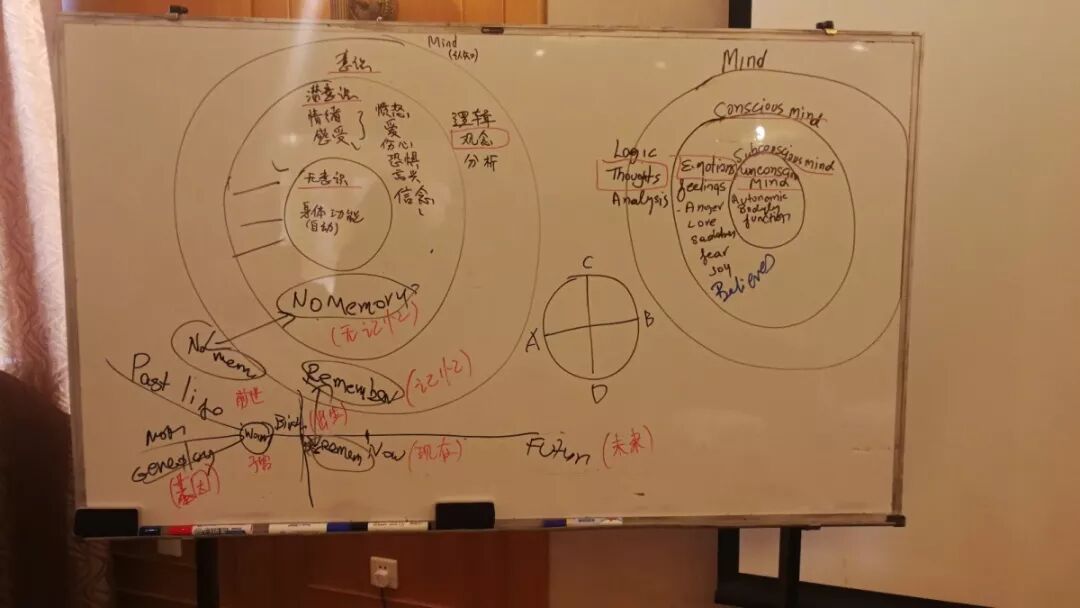 Mind
(认知)
意识
潜意识
情绪
感受
愤怒
爱
伤心
恐惧
喜
信念
逻辑
观念
分析
无意识
身体功能
(自动)
No Memory
(无记忆)
No mem
Past life
前世
Remember
(记忆)
Birth
(出生)
Remem
Now
(现在)
Future
(未来)
Mom
Womb
子宫
Genealogy
(基因)
C
A
B
D
Mind
Conscious mind
Subconscious mind
Unconscious
Mind
Autonomic
Bodily
function
Logic
Thoughts
Analysis
Emotions
feelings
Anger
Love
Sadden
fear
Joy
Believed